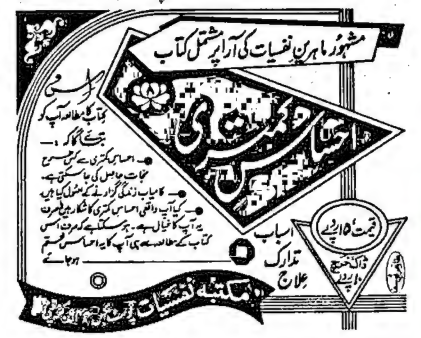 مشہور ماہرین نفسیات کی آرا پر مشتمل کتاب
احساس کمتری
اس
کتاب کا مطالعہ آپ کو
بتائے گا کہ :-
احساس کمتری سے کس طرح
نجات حاصل کی جا سکتی ہے۔
کامیاب زندگی گزارنے کے اصول کیا ہیں۔
کیا آپ واقعی احساس کمتری کا شکار ہیں یا صرف
یہ آپ کا خیال ہے۔ ہو سکتا ہے کہ صرف اس
کتاب کے مطالعہ سے ہی آپ کا یہ احساس ختم
ہو جائے
اسباب
تدارک
علاج
قیمت: ۱۵ روپے
ڈاک خرچ
۱۰ روپے
مکتبہ نفسیات پوسٹ بکس کراچی